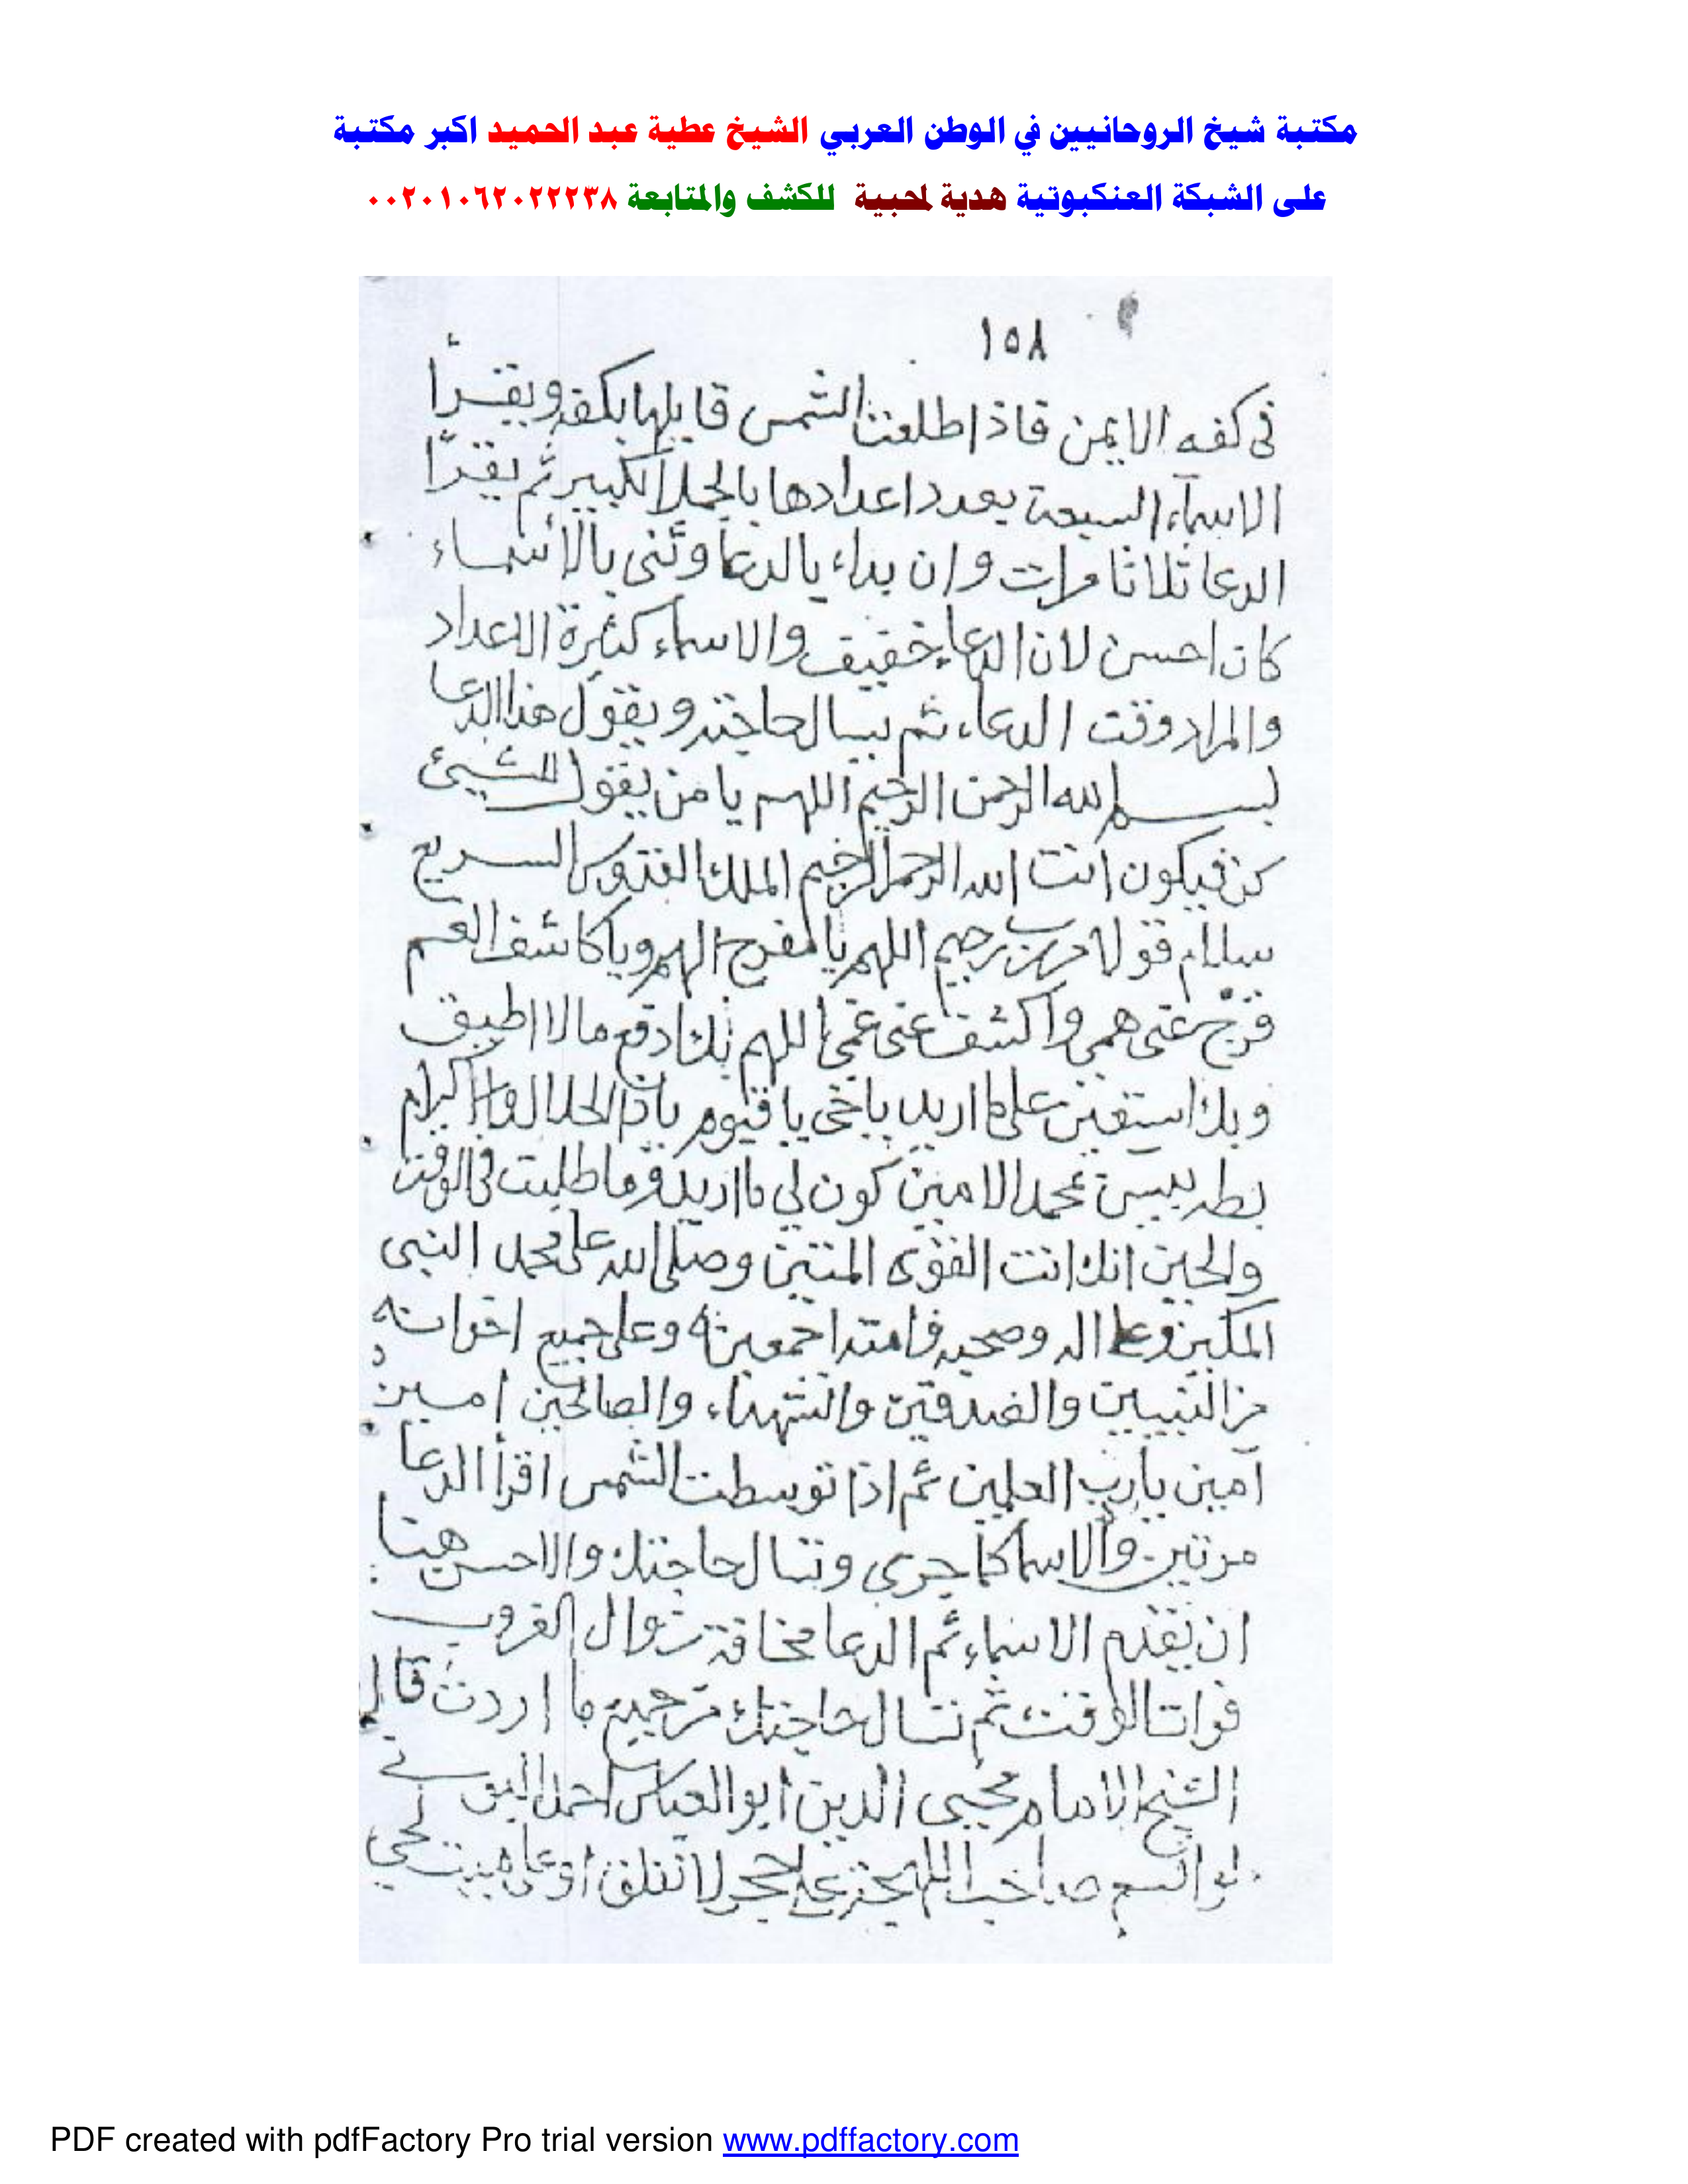 مكتبة شيخ الروحانيين في الوطن العربي الشيخ عطية عبد الحميد اكبر مكتبة
على الشبكة العنكبوتية هدية لمحبية للكشف والمتابعة ٠٠٢٠١٠٦٢٠٢٢٢٣٨
١٥٨
فى كفه الايمن فاذا طلعت الشمس قابلها بكفه ويقرأ
الاسماء السبعة بعدد اعدادها بالجمل الكبير ثم يقرأ
الدعا ثلاثا مرات وان بداء بالدعا وثنى بالأسماء
كان احسن لان الدعا خفيف والاسماء كثيرة الاعداد
والمراد وقت الدعاء ثم يسال حاجته ويقول هذا الدعا
بسم الله الرحمن الرحيم اللهم يا من يقول للشيئ
كن فيكون انت الله الرحمن الرحيم الملك القدوس السريع
سلام قولا من رب رحيم اللهم يا مفرج الهم ويا كاشف الغم
فرج عنى همى واكشف عنى غمى اللهم بك ادفع مالا اطيق
وبك استعين على ما اريد يا حى يا قيوم يا ذا الجلال والاكرام
محمد الامين كون لي ما اريد وما طلبت فى الوقت
والحين انك انت القوى المتين وصلى الله على محمد النبى
المكين وعلى اله وصحبه وامته اجمعين وعلى جميع اخوانه
من النبيين والصديقين والشهداء والصالحين امين
آمين يا رب العلمين ثم اذا توسطت الشمس اقرأ الدعا
مرتين والاسما كما جرى وتسال حاجتك والاحسن هنا
ان تقدم الاسماء ثم الدعا مخافة زوال الغروب
فوات الوقت ثم تسال حاجتك من جميع ما اردت قال
الشيخ الامام محيى الدين ابو العباس احمد البونى
حجر لا تفلق او على ميت لحي
PDF created with pdfFactory Pro trial version www.pdffactory.com